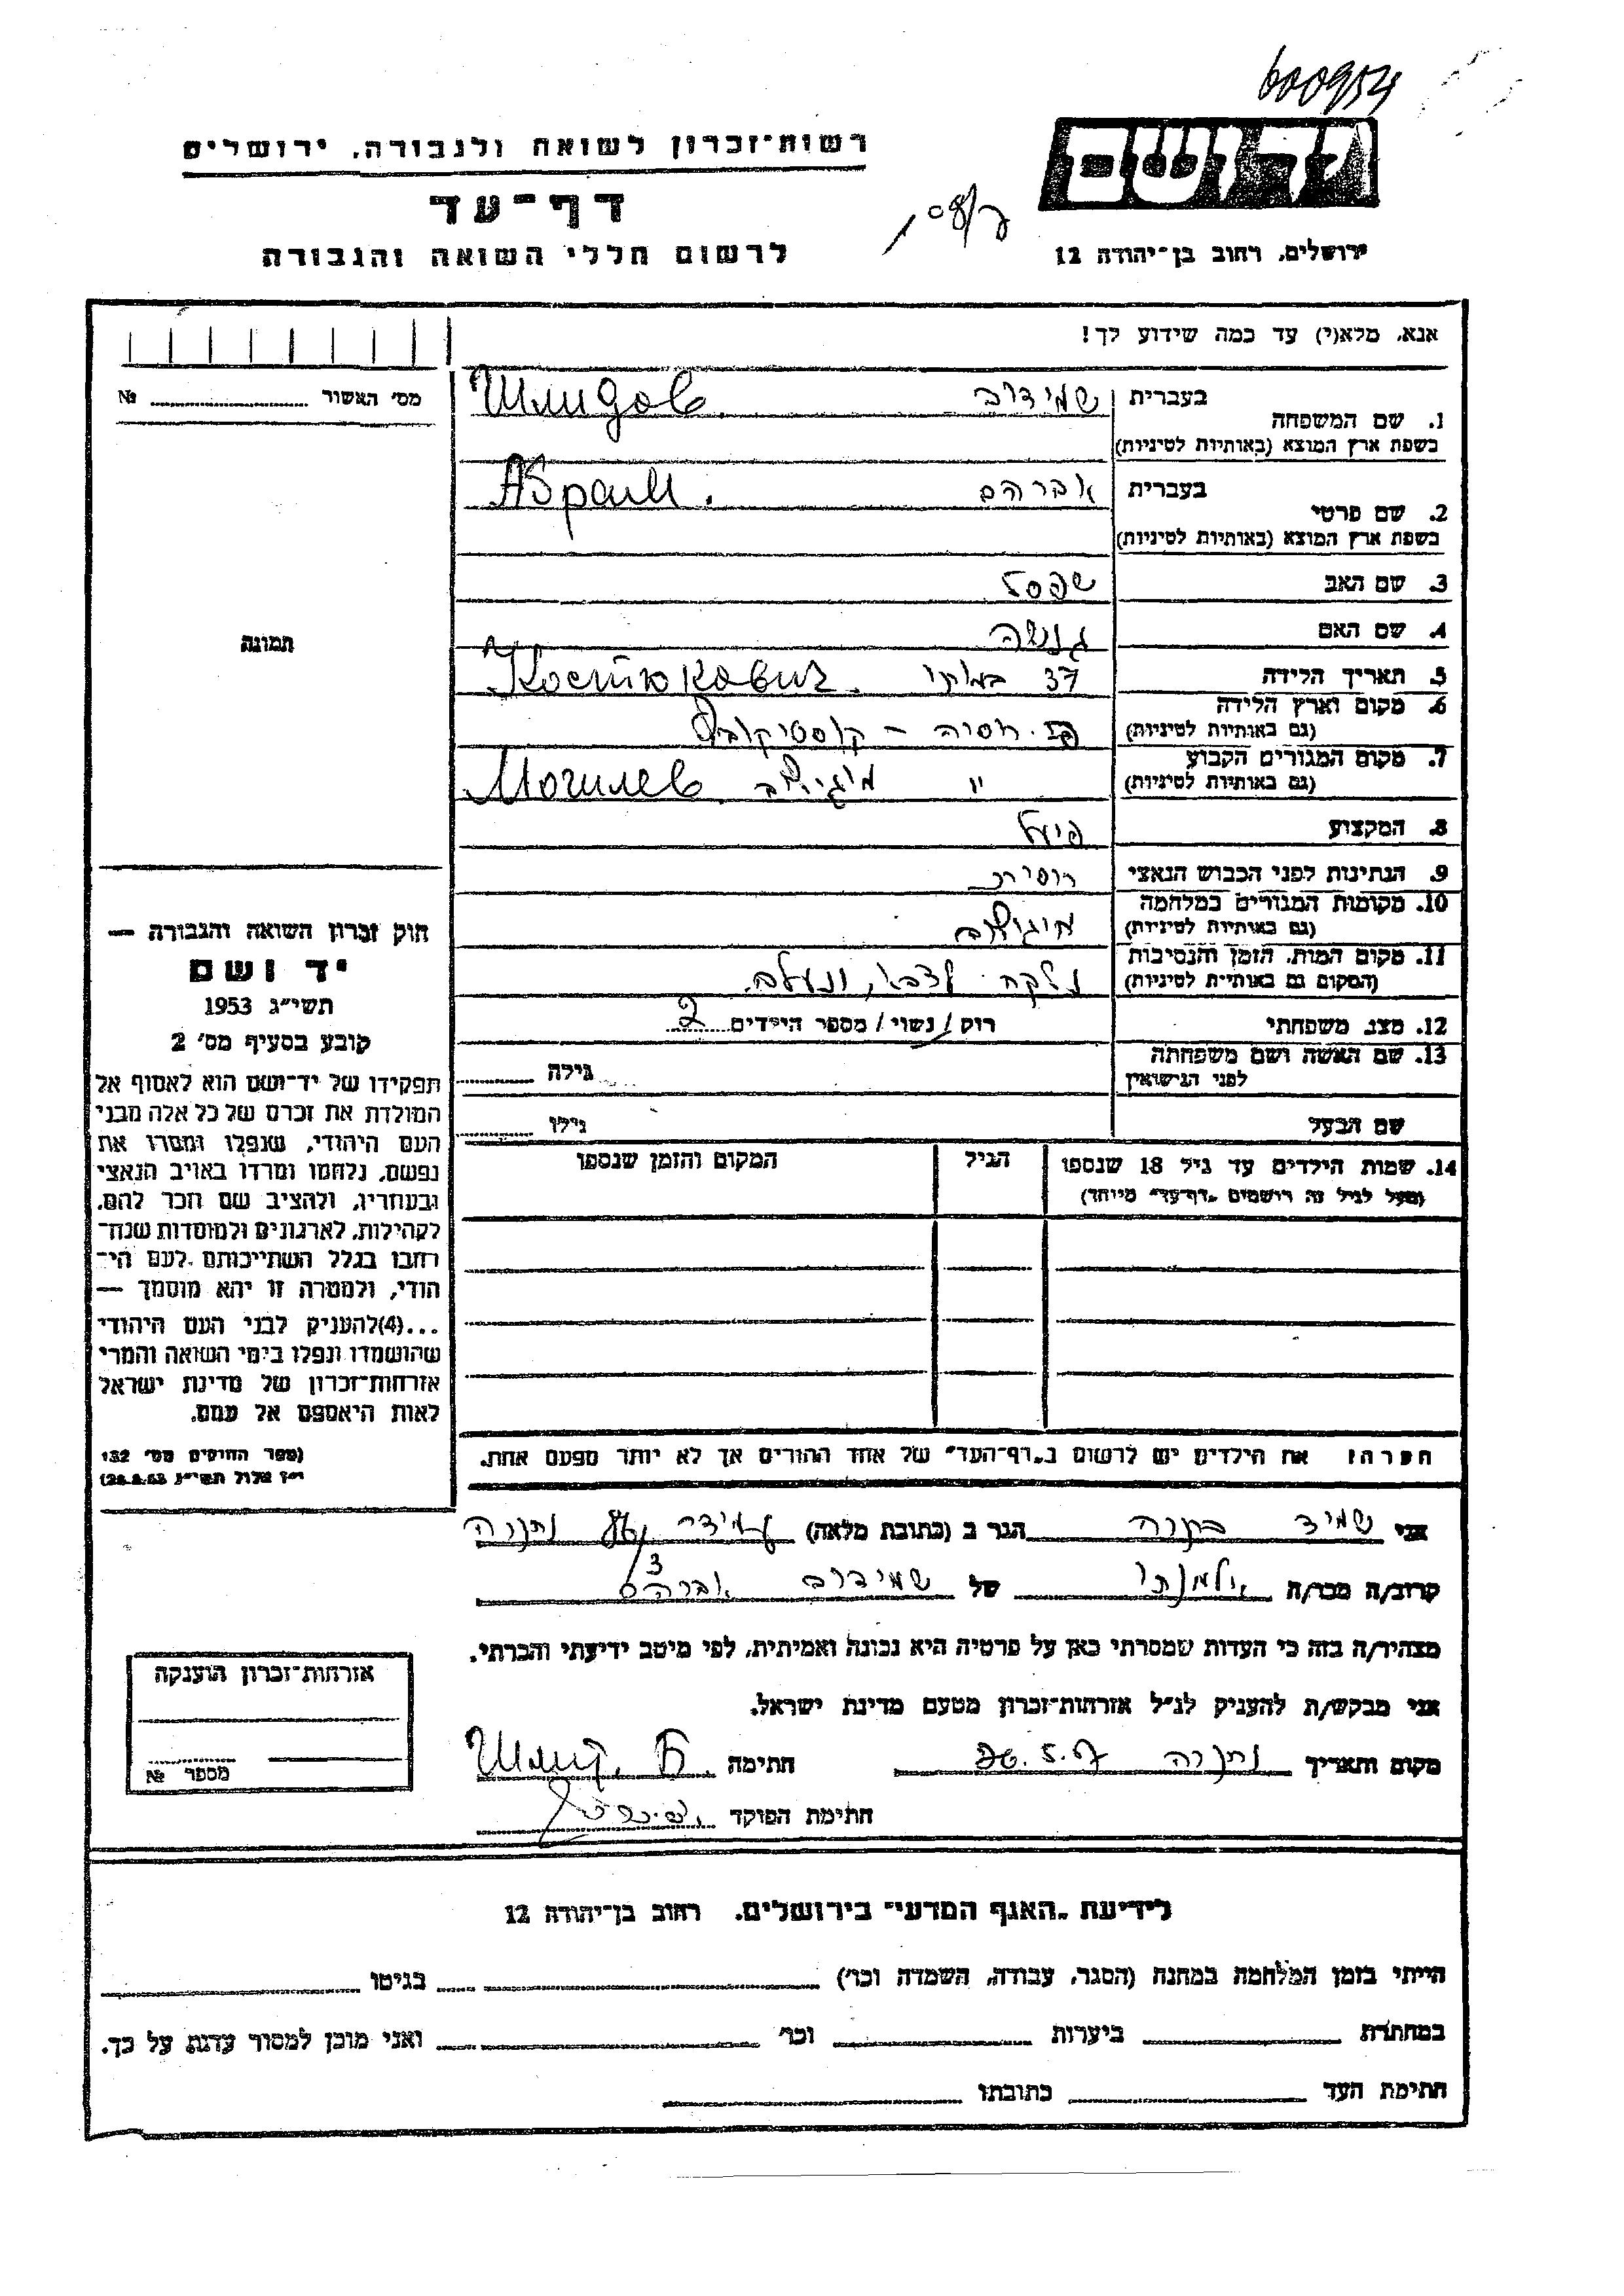 600954
רשות־זכרון לשואה ולגבורה, ירושלים
דף־עד
לרשום חללי השואה והגבורה
יד ושם
ירושלים, רחוב בן־יהודה 12
אנא, מלא(י) עד כמה שידוע לך!
מס׳ האשור №
1. שם המשפחה
בעברית שמידוב Шмидов.
בשפת ארץ המוצא (באותיות לטיניות)
2. שם פרטי
בעברית אברהם Абрам.
בשפת ארץ המוצא (באותיות לטיניות)
3. שם האב שפסל
4. שם האם
5. תאריך הלידה 37
6. מקום וארץ הלידה
(גם באותיות לטיניות)
7. מקום המגורים הקבוע " מוגילוב Могилев.
(גם באותיות לטיניות)
8. המקצוע פועל
9. הנתינות לפני הכבוש הנאצי רוסית
10. מקומות המגורים במלחמה מוגילוב
(גם באותיות לטיניות)
11. מקום המות, הזמן והנסיבות נלקח לצבא, ונעלם.
(המקום גם באותיות לטיניות)
12. מצב משפחתי רוק / נשוי / מספר הילדים 2
13. שם האשה ושם משפחתה
לפני הנישואין גילה
שם הבעל גילו
14. שמות הילדים עד גיל 18 שנספו הגיל המקום והזמן שנספו
(מעל לגיל זה רושמים „דף־עד" מיוחד)
הערה: את הילדים יש לרשום ב„דף־העד" של אחד ההורים אך לא יותר מפעם אחת.
תמונה
חוק זכרון השואה והגבורה —
יד ושם
תשי״ג 1953
קובע בסעיף מס׳ 2
תפקידו של יד־ושם הוא לאסוף אל
המולדת את זכרם של כל אלה מבני
העם היהודי, שנפלו ומסרו את
נפשם, נלחמו ומרדו באויב הנאצי
ובעוזריו, ולהציב שם וזכר להם,
לקהילות, לארגונים ולמוסדות שנח־
רבו בגלל השתייכותם לעם הי־
הודי, ולמטרה זו יהא מוסמך —
...(4) להעניק לבני העם היהודי
שהושמדו ונפלו בימי השואה והמרי
אזרחות־זכרון של מדינת ישראל
לאות היאספם אל עמם.
(ספר החוקים מס׳ 132
י״ז אלול תשי״ג 28.8.53)
אני שמיד הגר ב (כתובת מלאה) נתניה
3
קרוב/ה מכר/ה אלמנתו של שמידוב אברהם
מצהיר/ה בזה כי העדות שמסרתי כאן על פרטיה היא נכונה ואמיתית, לפי מיטב ידיעתי והכרתי.
אני מבקש/ת להעניק לנ״ל אזרחות־זכרון מטעם מדינת ישראל.
מקום ותאריך נתניה חתימה Шмид. Б.
חתימת הפוקד
אזרחות־זכרון הוענקה
מספר №
לידיעת „האגף המדעי" בירושלים, רחוב בן־יהודה 12
הייתי בזמן המלחמה במחנה (הסגר, עבודה, השמדה וכו׳) בגיטו
במחתרת ביערות וכו׳ ואני מוכן למסור עדות על כך.
חתימת העד כתובתו